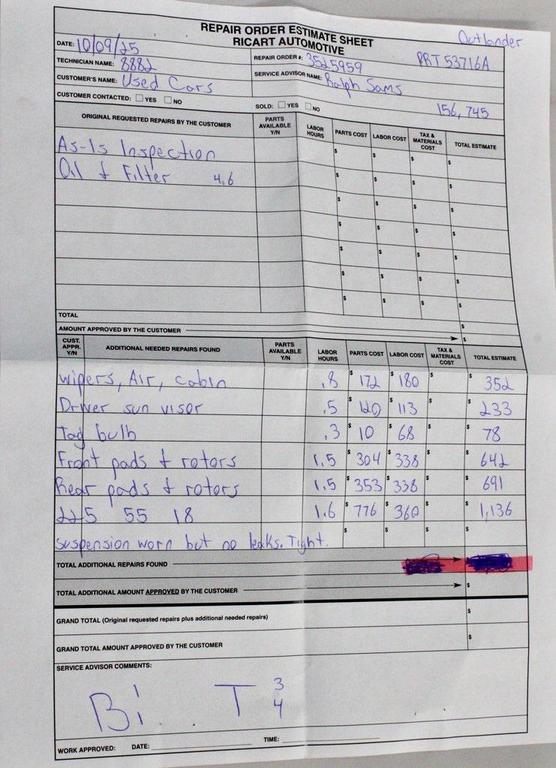 REPAIR ORDER ESTIMATE SHEET
RICART AUTOMOTIVE
Outlander
DATE: 10/09/25
REPAIR ORDER #: 3525959 PRT53716A
TECHNICIAN NAME: 8882
SERVICE ADVISOR NAME: Ralph Sams
CUSTOMER'S NAME: Used Cars
CUSTOMER CONTACTED: YES NO
SOLD: YES NO
156,745
ORIGINAL REQUESTED REPAIRS BY THE CUSTOMER PARTS AVAILABLE Y/N LABOR HOURS PARTS COST LABOR COST TAX & MATERIALS COST TOTAL ESTIMATE
As-Is Inspection $ $ $ $ $
Oil & Filter 4.6 $ $ $ $ $
$ $ $ $ $
$ $ $ $ $
$ $ $ $ $
$ $ $ $ $
$ $ $ $ $
TOTAL $
AMOUNT APPROVED BY THE CUSTOMER $
CUST. APPR. Y/N ADDITIONAL NEEDED REPAIRS FOUND PARTS AVAILABLE Y/N LABOR HOURS PARTS COST LABOR COST TAX & MATERIALS COST TOTAL ESTIMATE
wipers, Air, cabin .8 $ 172 $ 180 $ $ 352
Driver sun visor .5 $ 120 $ 113 $ $ 233
Tag bulb .3 $ 10 $ 68 $ $ 78
Front pads & rotors 1.5 $ 304 $ 338 $ $ 642
Rear pads & rotors 1.5 $ 353 $ 338 $ $ 691
225 55 18 1.6 $ 776 $ 360 $ $ 1,136
suspension worn but no leaks. Tight. $ $ $ $
TOTAL ADDITIONAL REPAIRS FOUND $
TOTAL ADDITIONAL AMOUNT APPROVED BY THE CUSTOMER $
GRAND TOTAL (Original requested repairs plus additional needed repairs) $
GRAND TOTAL AMOUNT APPROVED BY THE CUSTOMER $
SERVICE ADVISOR COMMENTS:
Bi T 3
4
WORK APPROVED: DATE: TIME: